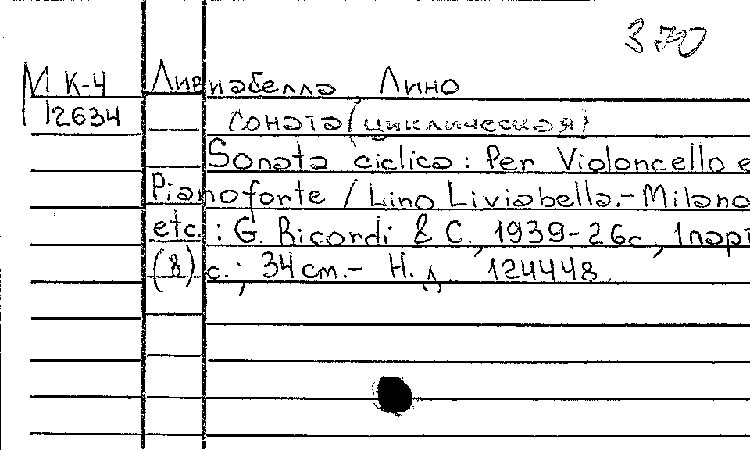 370
М К-4 Ливиабелла, Лино
12634 Соната (циклическая)
Sonata ciclica : Per Violoncello e
Pianoforte / Lino Liviabella.- Milano
etc. : G. Ricordi & C., 1939-26с., 1парт
(8) с. ; 34 см.- Н. д. 124448